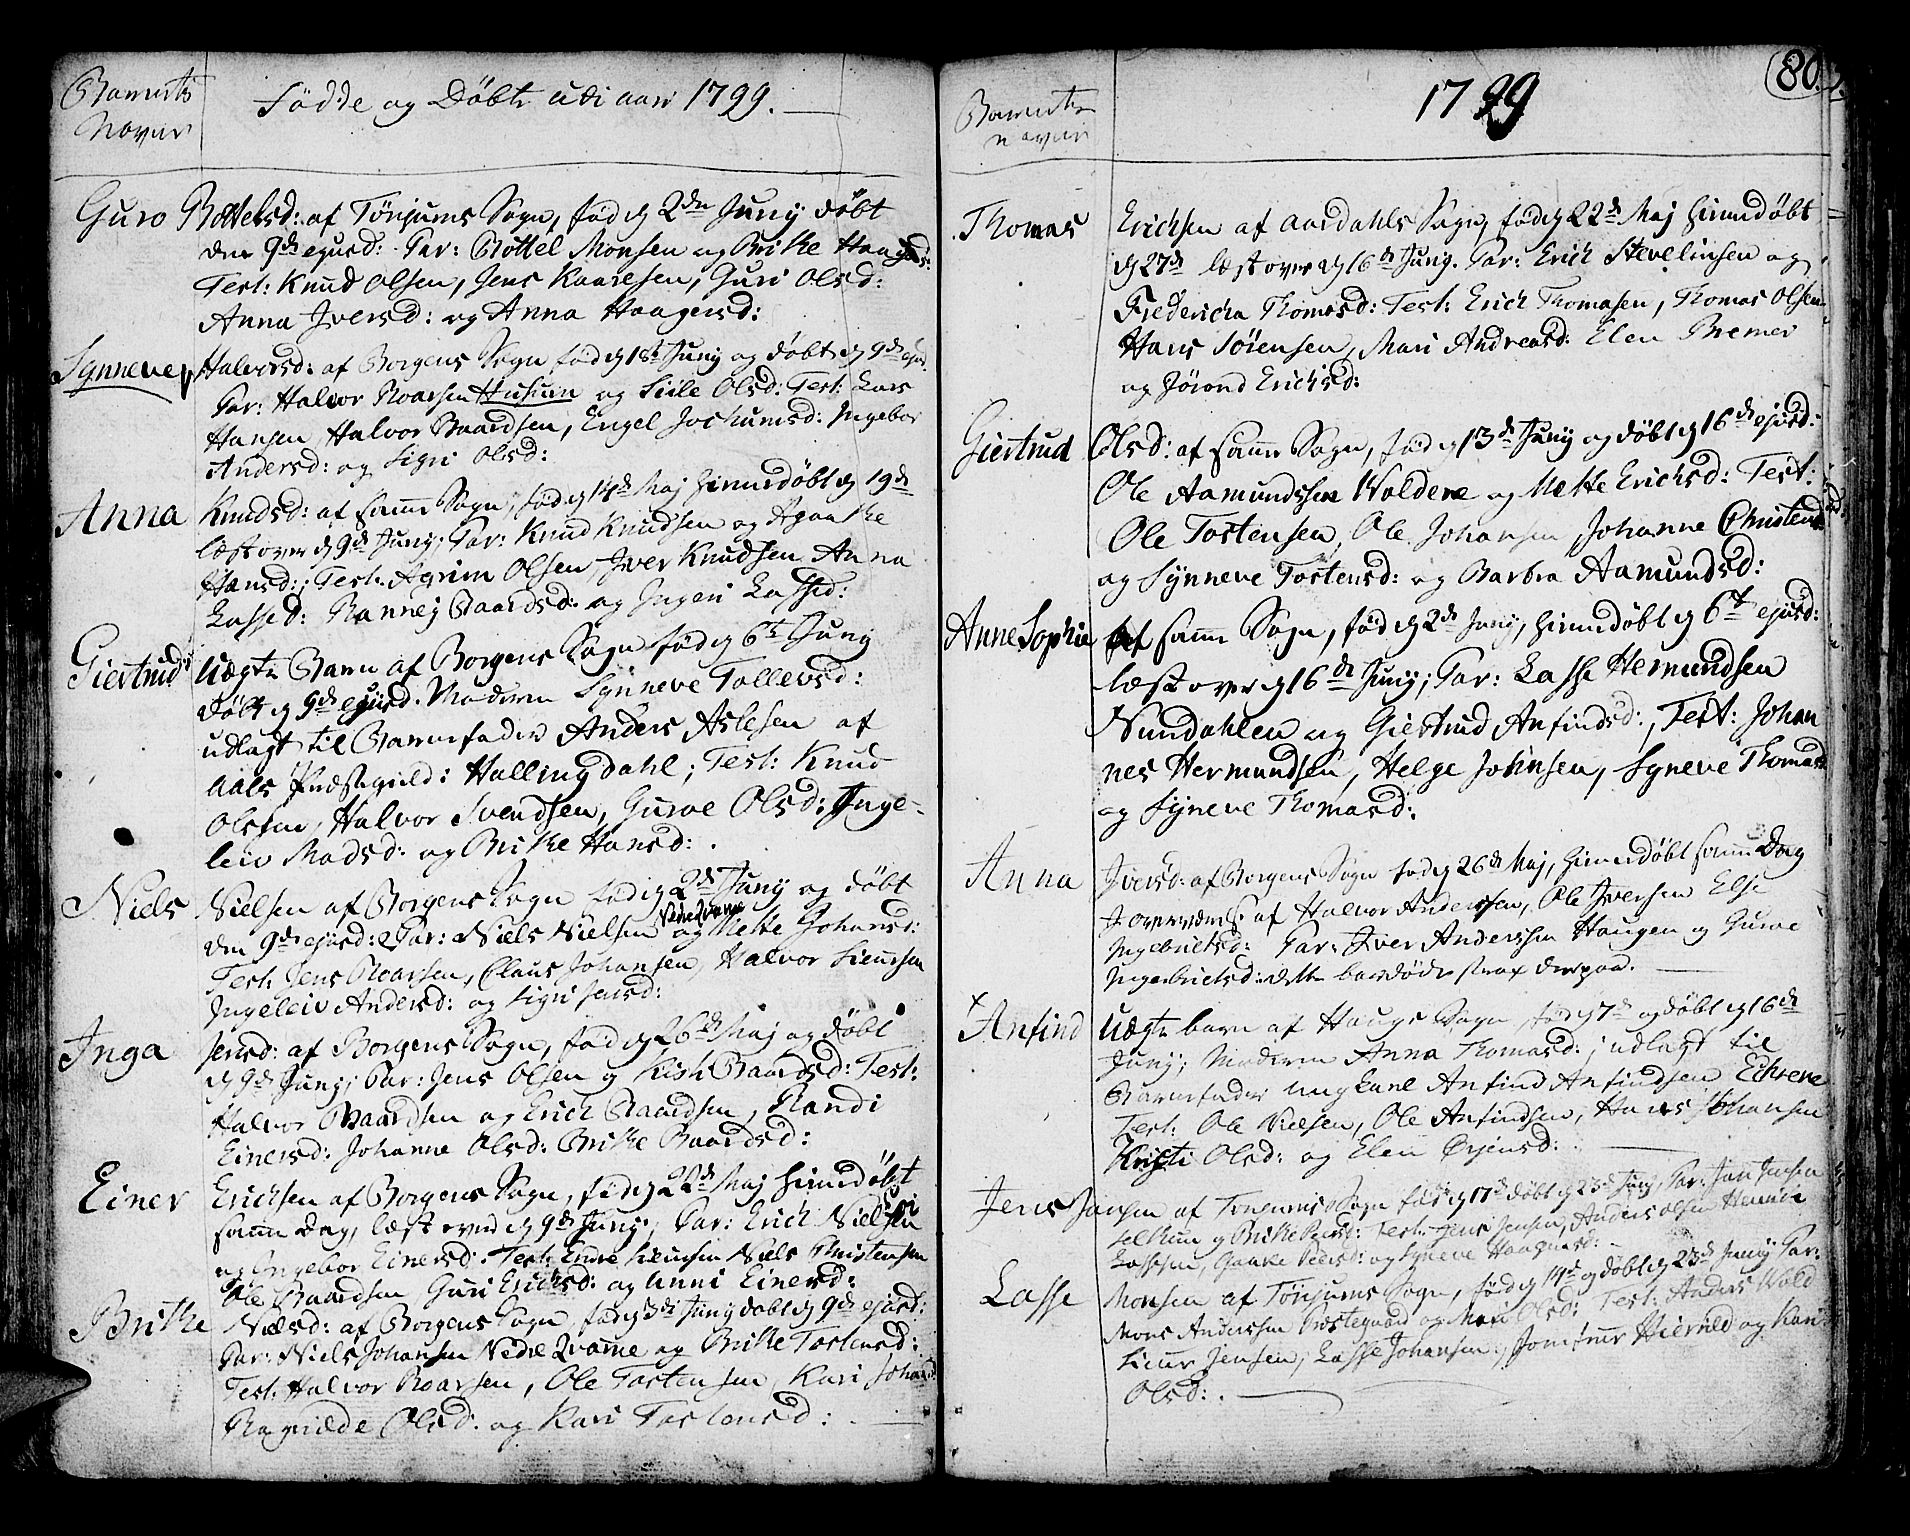 Barnets
Navn
Fødde og Døbte udi aar 1799.
Guro Bottelsd: af Tönjums Sogn, föd d 2den Juny döbt
den 9de ejusd: Par: Bottel Monsen og Brithe Haagensd:
Test: Knud Olsen, Jens Kaaresen, Guri Olsd:
Anna Iversd: og Anna Haagensd:
Synneve Halvorsd: af Borgens Sogn föd d 1st Juny og döbt d 9de ejusd.
Par: Halvor Roarsen Husum og Sille Olsd: Test: Lars
Hansen, Halvor Baardsen, Engel Jochumsd: Ingebor
Andersd: og Sigri Olsd:
Anna Knudsd: af samme Sogn, föd d 14de Maj hiemdöbt d 19de
læst over d 9de Juny; Par: Knud Knudsen og Agaathe
Hansd:; Test: Agrim Olsen, Iver Knudsen Anna
Lassed: Rannej Baardsd: og Ingeri Lassed:
Giertrud Uægte Barn af Borgens Sogn föd d 6te Juny
döbt d 9de ejusd. Moderen Synneve Tollevsd:
udlagt til Barnefader Anders Aslesen af
Aals Præstegield: Hallingdahl; Test: Knud
Olsen, Halvor Svendsen, Gurve Olsd: Inge-
leiv Madsd: og Brithe Hansd:
Niels Nielsen af Borgens Sogn föd d 2de Juny og döbt
Nedrevame
den 9de ejusd: Par: Niels Nielsen og Mette Johansd:
Test: Jens Roarsen, Claus Johansen, Halvor Siursen
Ingeleiv Andersd: og Sigri Jensd:
Inga Jensd: af Borgens Sogn, föd d 26de Maj og döbt
d 9de Juny; Par: Jens Olsen og Kisti Baardsd: Test:
Halvor Baardsen og Erich Baardsen, Randi
Einersd: Johanne Olsd: Brithe Baardsd:
Einer Erichsen af Borgens Sogn, föd d 22de Maj hiemdöbt
samme Dag, læst over d 9de Juny, Par: Erich Nielsen
og Ingebor Einersd: Test: Endre Siursen Niels Christensen
Ole Baardsen Guri Erichsd: og Anni Einersd:
Brithe Nielsd: af Borgens Sogn, föd d 3de Juny döbt d 9de ejusd:
Par: Niels Johansen Nedre Qvame og Brithe Tostensd:
Test: Halvor Roarsen, Ole Tostensen, Kari Johansd
Ragnilde Olsd: og Kari Tostensd:
80.
Barnets
navn
1799
Thomas Erichsen af Aardahls Sogn, föd d 22de Maj hiemdöbt
d 27de læst over d 16de Juny. Par: Erich Stevelinsen og
Fredericha Thomasd: Test: Erich Thomasen, Thomas Olsen
Hans Sörensen, Mari Andreasd: Elen Bremer
og Jörond Erichsd:
Giertrud Olsd: af samme Sogn, föd d 13de Juny og döbt d 16de ejusd:
Ole Aamundssen Woldene og Mette Erichsd: Test:
Ole Tostensen, Ole Johansen Johanne Christensd
og Synneve Tostensd: og Barbra Aamundsd:
Anne Sophie af samme Sogn, föd d 2de Juny, hiemdöbt d 6te ejusd:
læst over d 16de Juny; Par: Lasse Hermundsen
Nundahlen og Giertrud Anfindsd:, Test: Johan
nes Hermundsen, Helge Johnsen, Syneve Thomasd
og Syneve Thomasd:
Anna Iversd: af Borgens Sogn föd d 26de Maj, hiemdöbt samme Dag
I overværelse af Halvor Andersen, Ole Iversen Else
Ingebrietsd: Par: Iver Anderssen Haugen og Gurve
Ingebrietsd: dette barn döde strax derpaa.
Anfind Uægte barn af Hauge Sogn, föd d 7de og döbt d 16de
Juny; Moderen Anna Thomasd:; udlagt til
Barnefader ungkarl Anfind Anfindsen Echrene
Test: Ole Nielsen, Ole Anfindsen, Hans Johansen
Kristi Olsd: og Elen Örjensd:
Jens Jansen af Tonjums Sogn föd d 17de döbt d 23de Juny, Par: Jan Jensen
og Brithe Test: Jens Jensen, Anders Olsen
Lassesen, Gaathe Pedersd: og Syneve Haagensd:
Lasse Monsen af Tönjums Sogn, föd d 19de og döbt d 23de Juny Par:
Mons Anderssen Præstegaard og Mari Olsd: Test: Anders Wold
Siur Jensen, Lasse Johansen, Jomfrue Hierneld og Kari
Olsd: